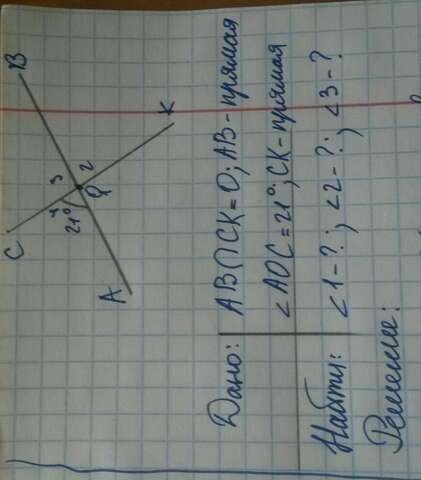 B
C
K
3
2
1
21°
O
A
Дано: AB∩CK=O; AB-прямая
∠AOC=21°; CK-прямая
Найти: ∠1-?; ∠2-?; ∠3-?
Решение: